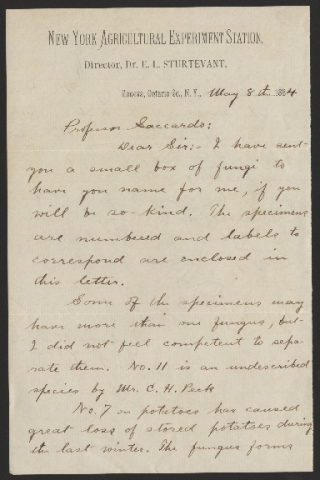 NEW YORK AGRICULTURAL EXPERIMENT STATION,
Director, Dr. E. L. STURTEVANT,
Geneva, Ontario Co., N. Y., May 8th 1884
Professor Saccardo:
Dear Sir:- I have sent
you a small box of fungi to
have you name for me, if you
will be so kind. The specimens
are numbered and labels to
correspond are enclosed in
this letter.
Some of the specimens may
have more than one fungus, but
I did not feel competent to sepa-
rate them. No. 11 is an undescribed
species by Mr. C. H. Peck
No. 7 on potatoes has caused
great loss of stored potatoes during
the last winter. The fungus forms